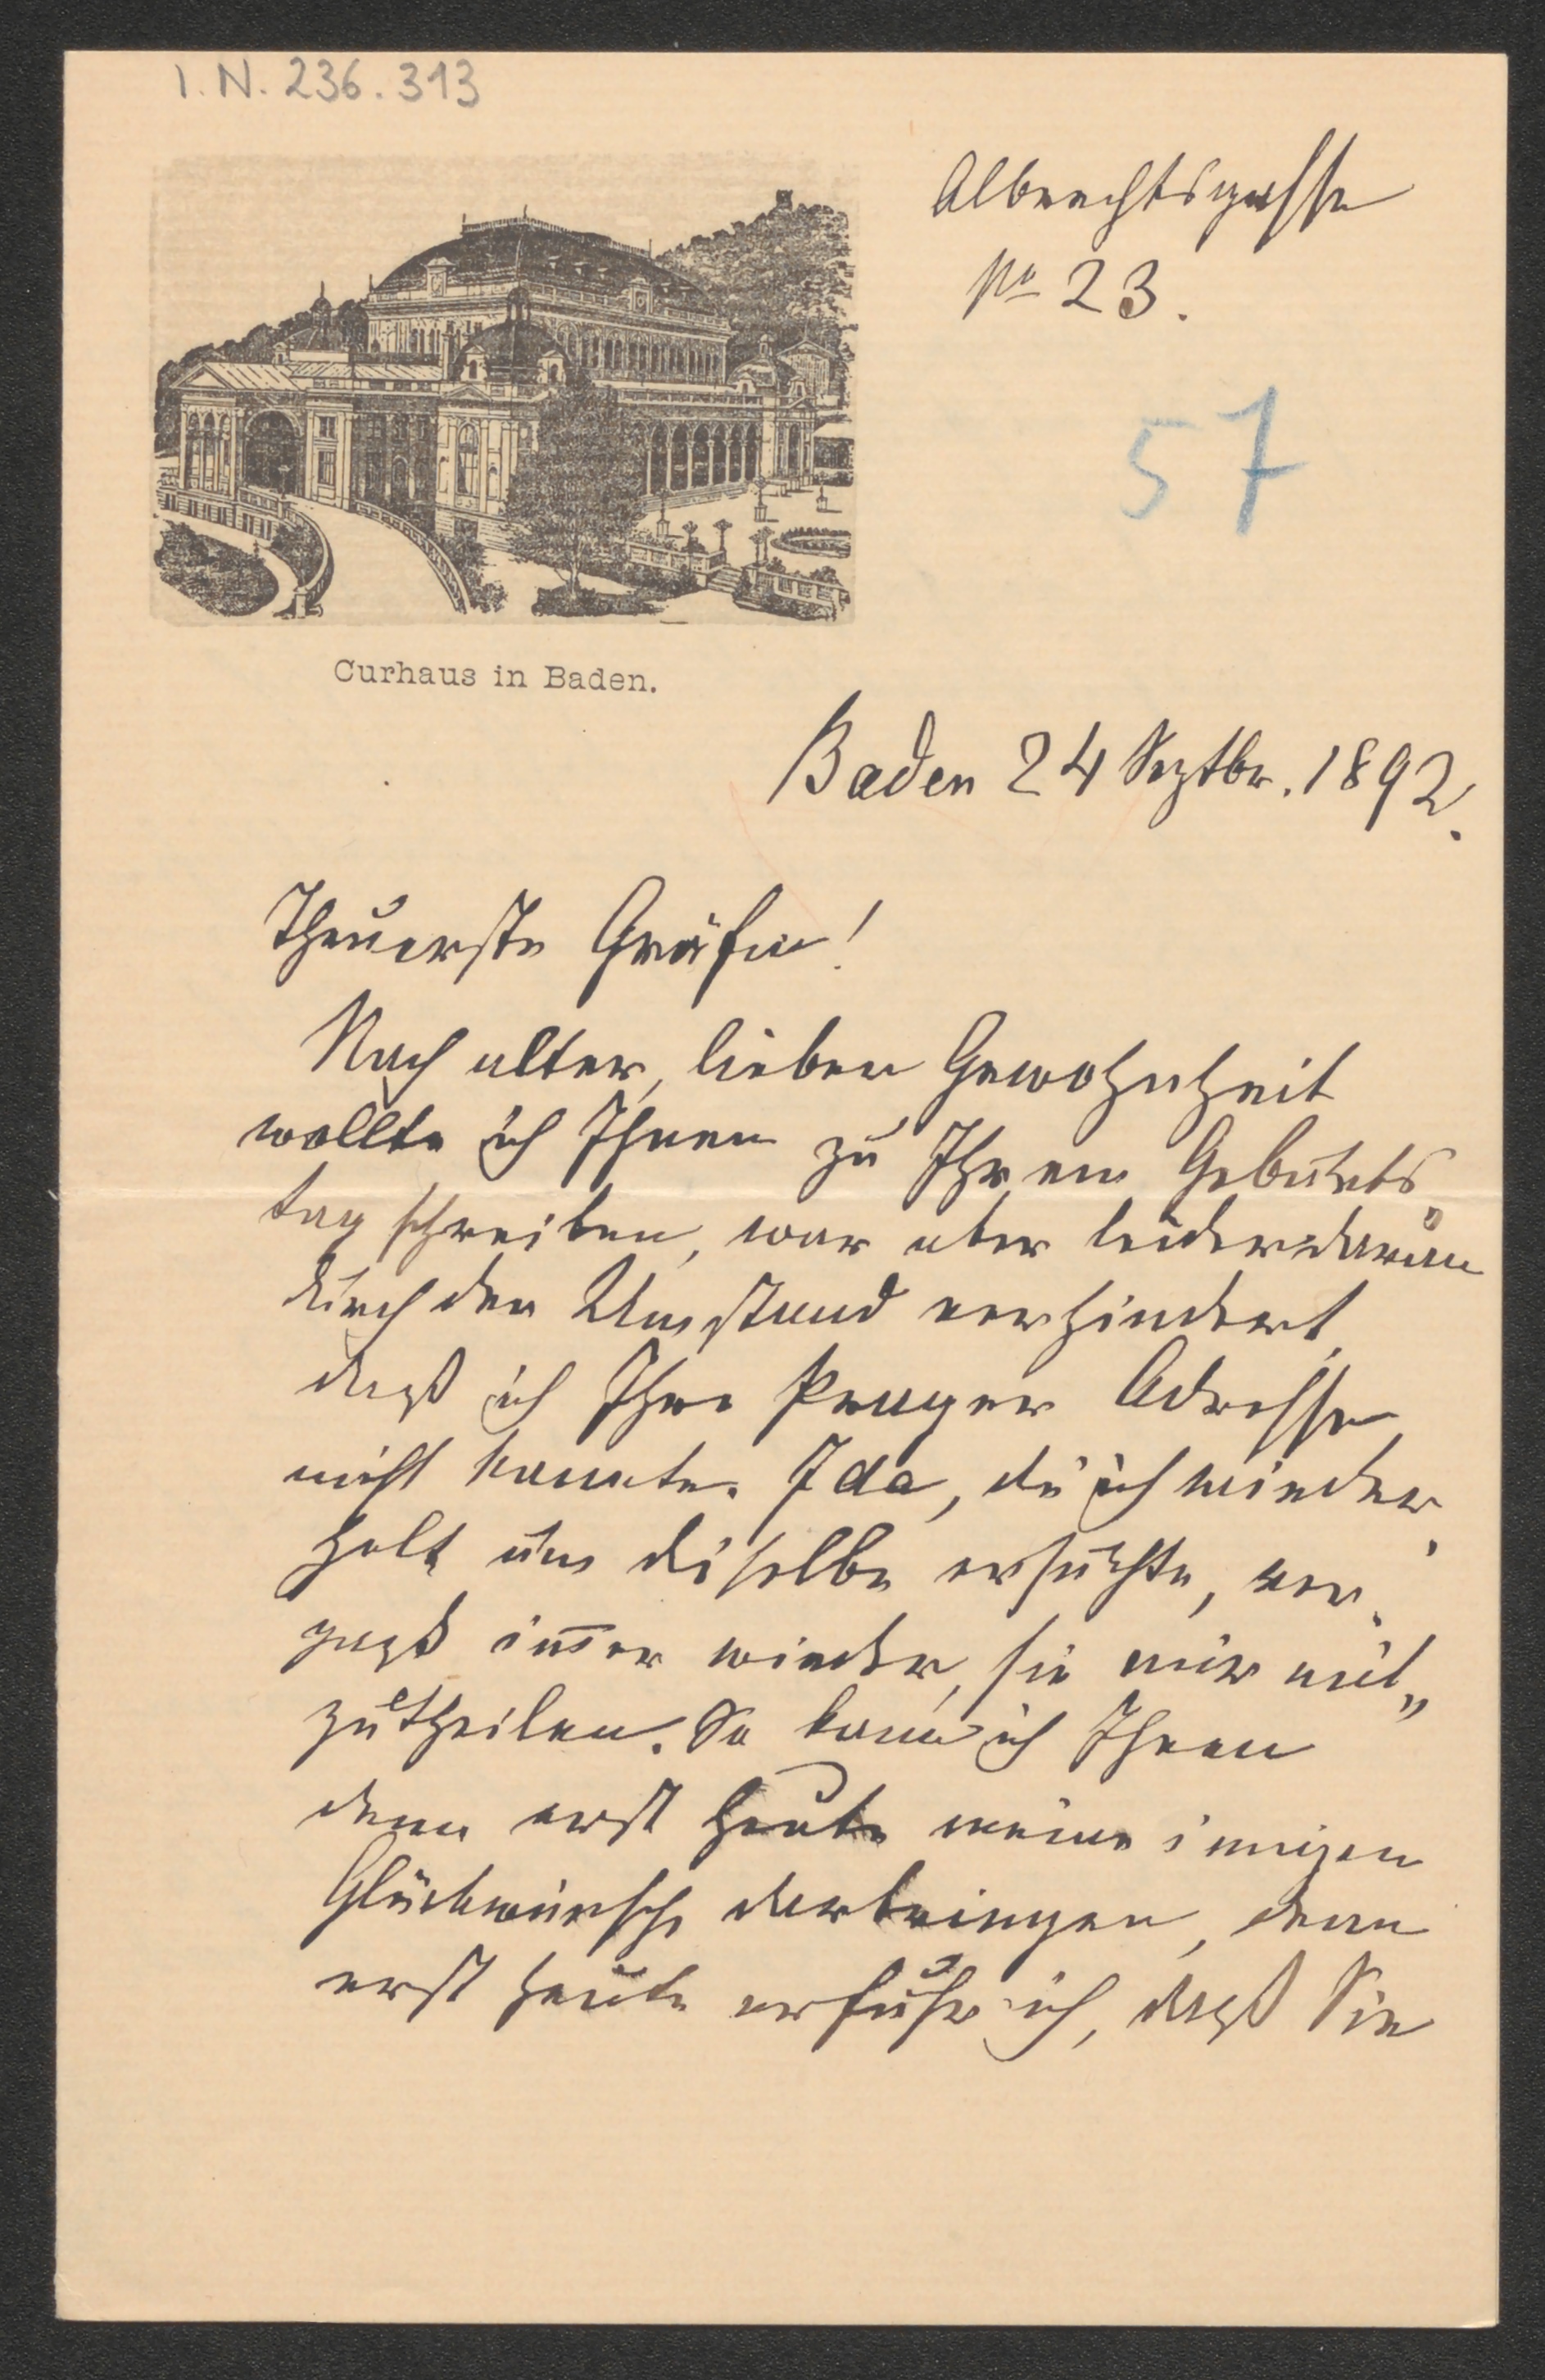 I. N. 236.313
Albrechtsgasse
No 23.
57
Curhaus in Baden.
Baden 24 Septbr. 1892.
Theuerste Gräfin!
Nach alter, lieber Gewohnheit
wollte ich Ihnen zu Ihrem Geburts„
tag schreiben, war aber leider daran
durch den Umstand verhindert,
daß ich Ihre Prager Adresse
nicht kannte. Ida, die ich wieder„
holt um dieselbe ersuchte, ver„
gaß im̅er wieder, sie mir mit„
zutheilen. So kann ich Ihnen
denn erst heute meine innigen
Glückwünsche darbringen, denn
erst heute erfuhr ich, daß Sie